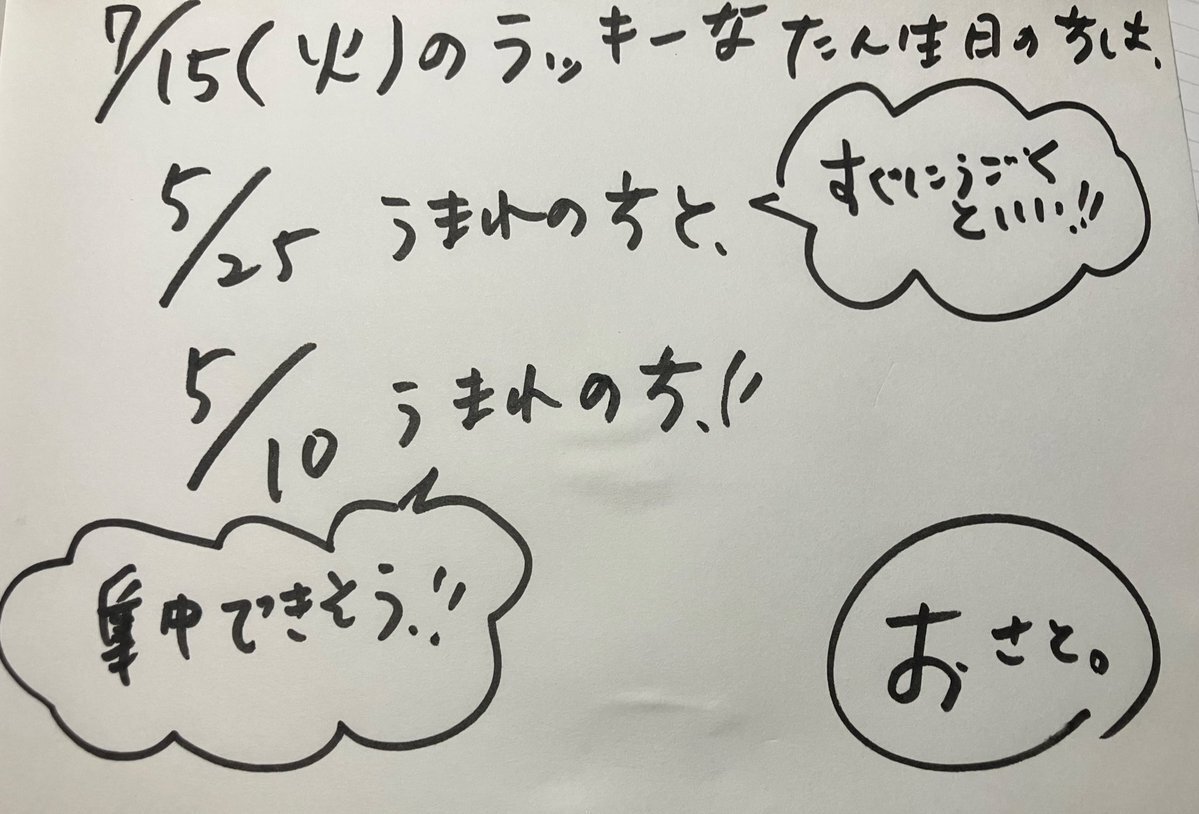 7/15(火)のラッキーなたん生日の方は、
5/25 うまれの方と、
すぐにうごく
といい!!
5/10 うまれの方、!!
集中できそう!!
おさと。